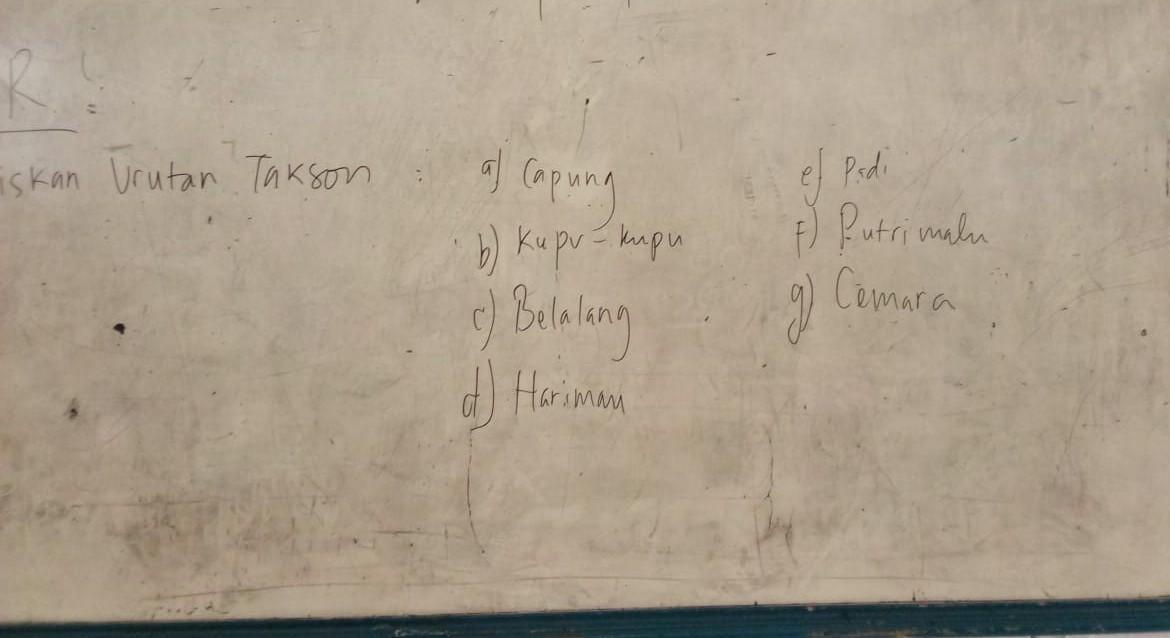 R !
iskan Urutan Takson :
a) Capung
b) Kupu - kupu
c) Belalang
d) Harimau
e) Padi
f) Putri malu
g) Cemara